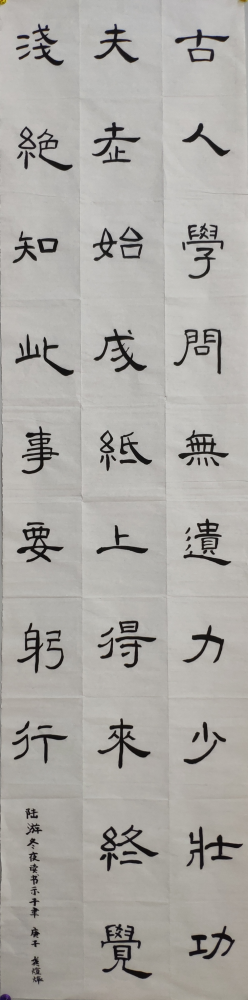 古人學問無遺力少壯功
夫老始成紙上得來終覺
淺絶知此事要躬行
陆游冬夜读书示子聿 庚子